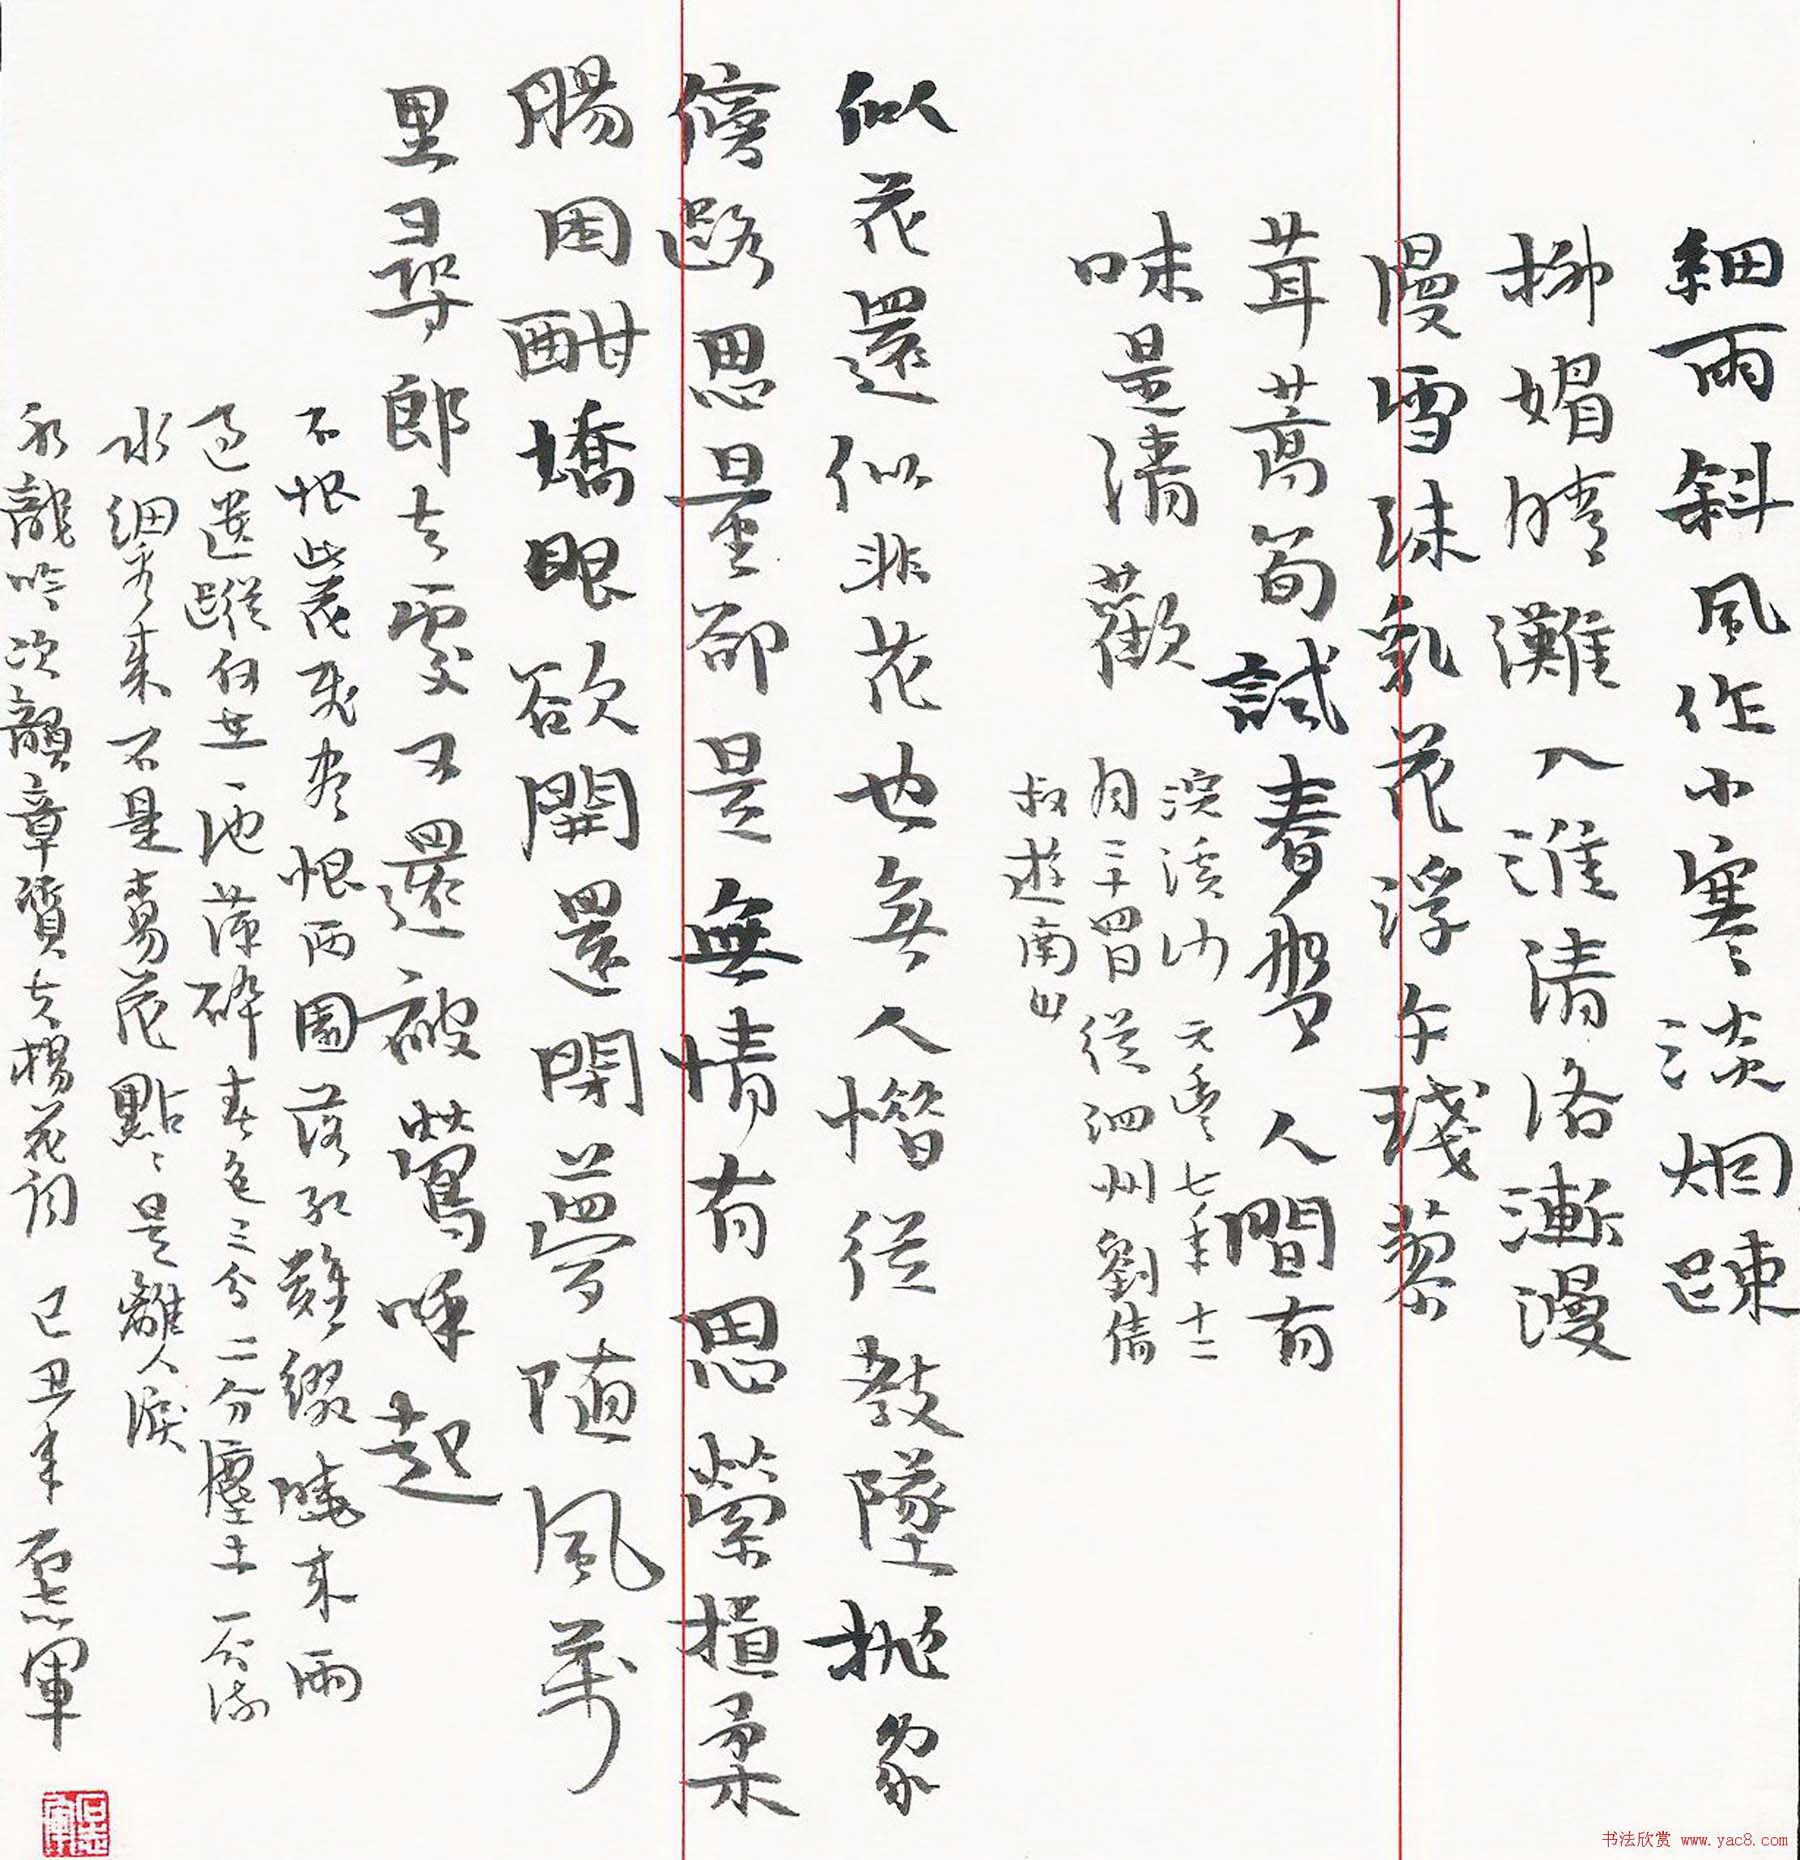 細雨斜風作小寒淡烟疎
柳媚晴灘入淮清洛漸漫
漫雪沫乳花浮午琖蓼
茸蒿筍試春盤人間有
味是清歡
浣溪沙 元豐七年十二
月二十四日從泗州劉倩
叔遊南山
似花還似非花也無人惜從教墜拋家
傍路思量卻是無情有思縈損柔
腸困酣嬌眼欲開還閉夢隨風萬
里尋郎去處又還被鶯呼起
不恨此花飛盡恨西園落紅難綴曉來雨
過遺蹤何在一池萍碎春色三分二分塵土一分流
水細看來不是楊花點、是離人淚
水龍吟次韻章質夫楊花詞 己丑年 石志軍
石志軍
书法欣赏 www.yac8.com